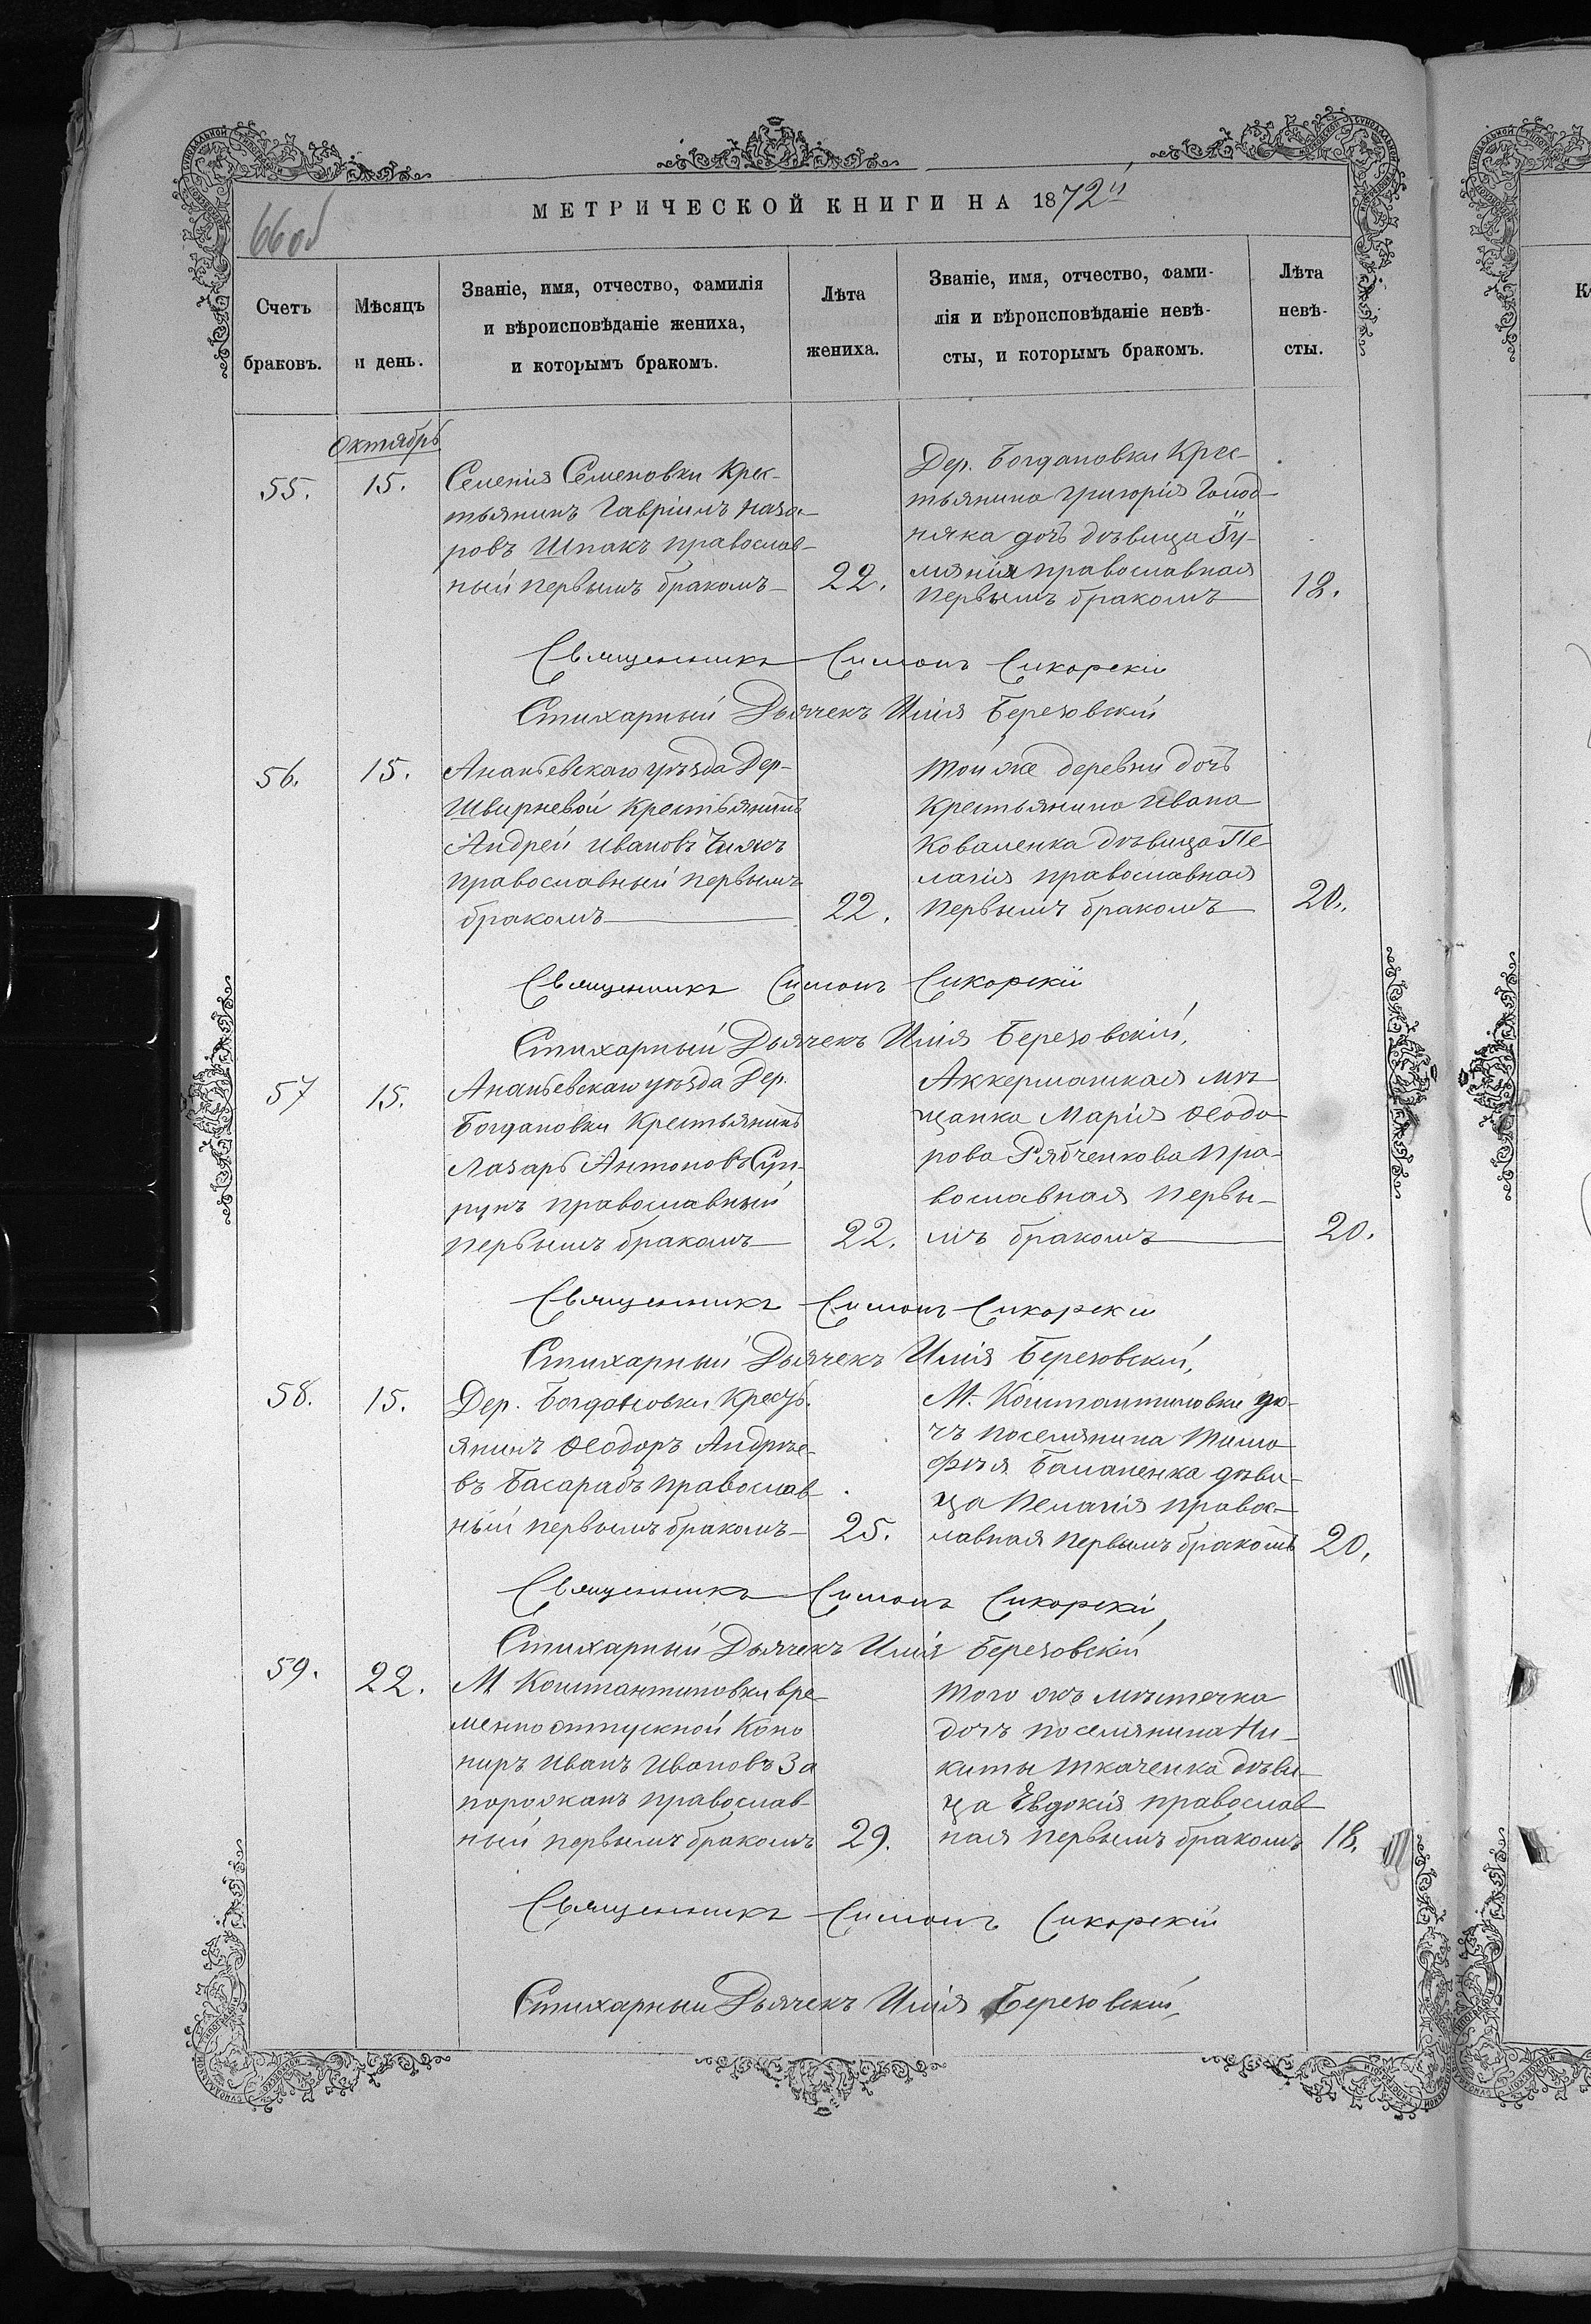 66об
МЕТРИЧЕСКОЙ КНИГИ НА 1872й
Счетъ браковъ.
Мѣсяцъ и день.
Званіе, имя, отчество, фамилія
и вѣроисповѣданіе жениха,
и которымъ бракомъ.
Лѣта
жениха.
Званіе, имя, отчество, фами-
лія и вѣроисповѣданіе невѣ-
сты, и которымъ бракомъ.
Лѣта
невѣ-
сты.
Октябрь
55.
15.
Селенія Семеновки Крес-
тьянинъ Гавріилъ Наза-
ровъ Шпакъ православ-
ный первымъ бракомъ
22.
Дер. Богдановки Крес-
тьянина Григорія Голод-
няка дочь дѣвица Іу-
лянія православная
первымъ бракомъ
18.
Священникъ Симонъ Сикорскій
Стихарный Дьячекъ Илія Березовскій
56.
15.
Ананьевскаго уѣзда Дер-
Швирневой Крестьянинъ
Андрей Ивановъ
православный первымъ
бракомъ
22.
Той же деревни дочь
Крестьянина Ивана
Коваленка дѣвица Пе
лагія православная
первымъ бракомъ
20.
Священникъ Симонъ Сикорскій
Стихарный Дьячекъ Илія Березовскій,
57
15.
Ананьевскаго уѣзда Дер.
Богдановки Крестьянинъ
Лазарь Антоновъ Суп-
рунъ православный
первымъ бракомъ
22.
Аккерманская мѣ
щанка Марія Ѳеодо-
рова Рябченкова пра-
вославная первы-
мъ бракомъ
20.
Священникъ Симонъ Сикорскій
Стихарный Дьячекъ Илія Березовскій,
58.
15.
Дер. Богдановки Кресть.
янинъ Ѳеодоръ Андрѣе-
въ Басарабъ православ
ный первымъ бракомъ
25.
М. Константиновки до-
чъ поселянина Тимо
фѣя Баланенка дѣви-
ца Пелагія правос-
лавная первымъ бракомъ
20.
Священникъ Симонъ Сикорскій
Стихарный Дьячекъ Илія Березовскій
59.
22.
М Константиновки вре
менноотпускной Кано
ниръ Иванъ Ивановъ За
порожанъ православ-
ный первымъ бракомъ
29.
Того жъ мѣстечка
дочъ поселянина Ни-
киты Ткаченка дѣви-
ца Евдокія православ
ная первымъ бракомъ
18.
Священникъ Симонъ Сикорскій
Стихарный Дьячекъ Илія Березовскій,